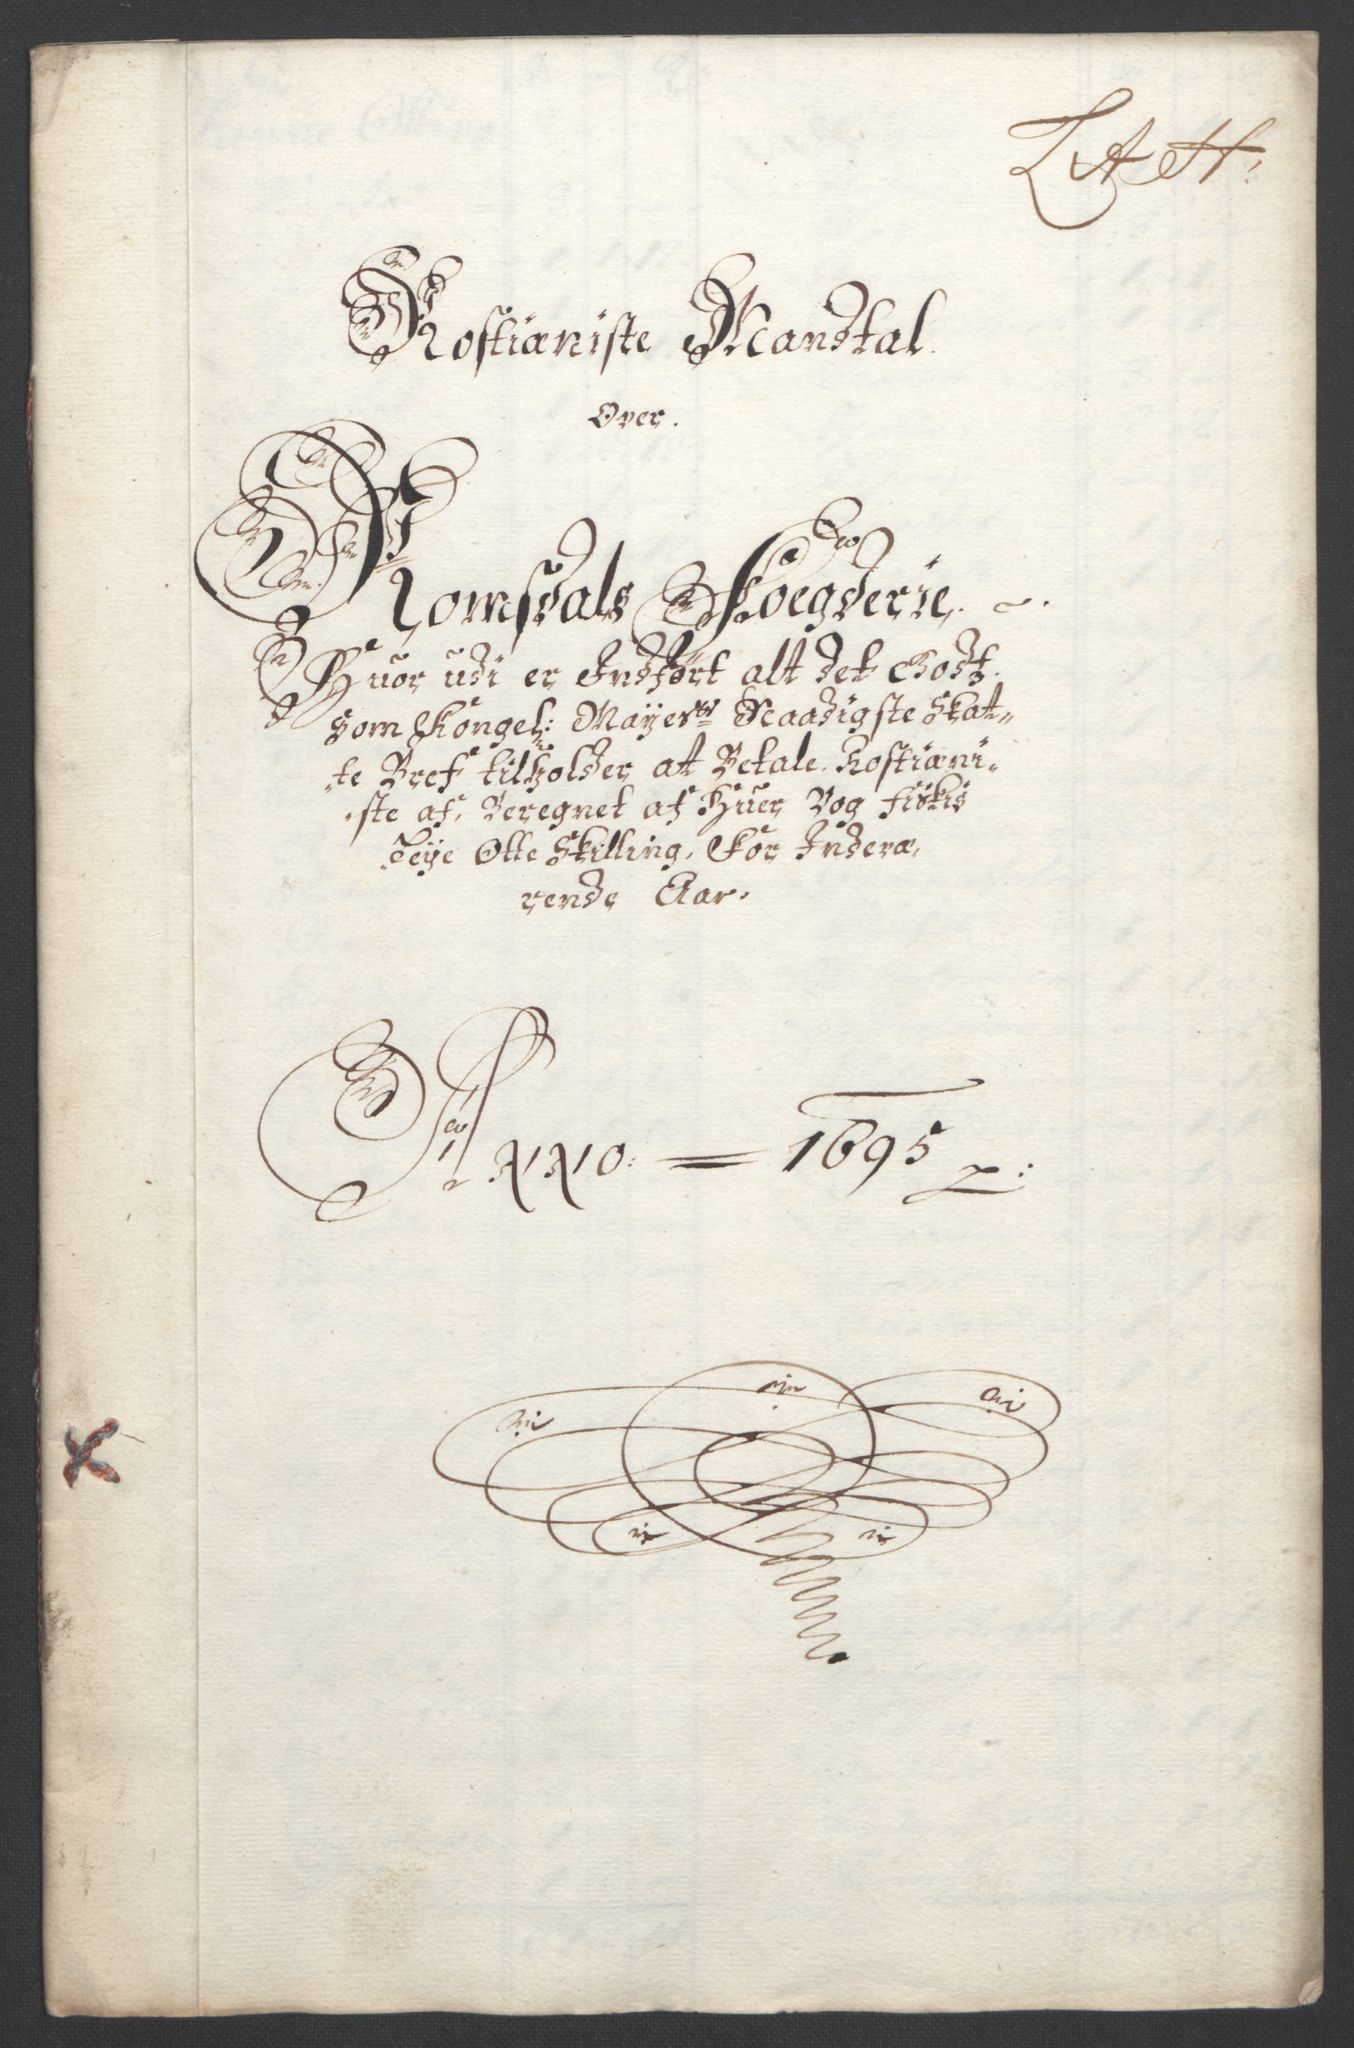 Lit H:
Rostieniste Mandtal.
Over.
Romsdals Foegderie.
Huor udi er Indført alt det Godz.
som Kongel: Mayes:ts Naadigste Skat=
te Bref tilholder at Betale, Rostieni=
ste af, Beregnet af Huer Vog fiskis
Leye Otte Skilling, For Indevæ,
rende Aar.
Anno: = 1695